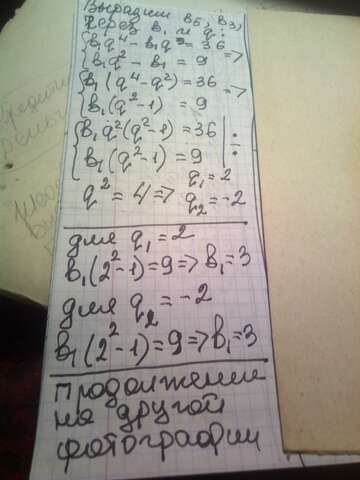 Выразим b₅, b₃,
через b₁ и q:
{b₁q⁴ − b₁q² = 36
{b₁q² − b₁ = 9 =>
{b₁(q⁴ − q²) = 36
{b₁(q² − 1) = 9 =>
{b₁q²(q² − 1) = 36 | :
{b₁(q² − 1) = 9
q² = 4 => q₁ = 2
q₂ = −2
для q₁ = 2
b₁(2² − 1) = 9 => b₁ = 3
для q₂ = −2
b₁(2² − 1) = 9 => b₁ = 3
продолжении
на другой
фотографии